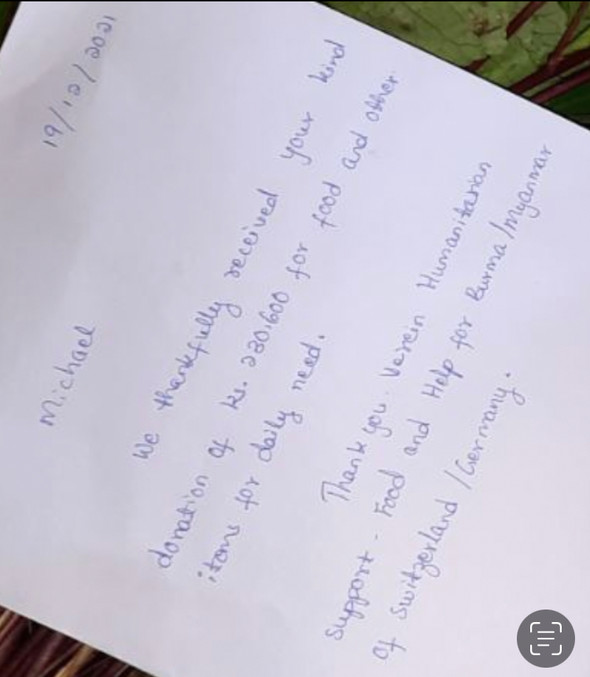 19/12/2021
Michael
We thankfully received your kind
donation of ks. 230,600 for food and other
items for daily need.
Thank you. Verein Humanitarian
support - Food and Help for Burma/Myanmar
of Switzerland/Germany.